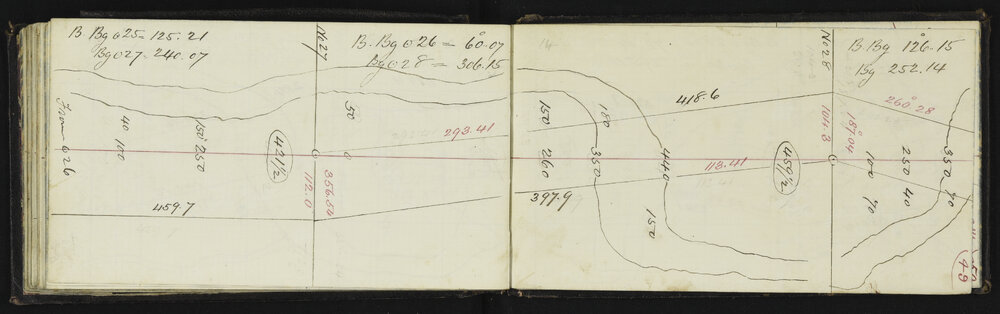 B. Bg ⊙ 25 = 125.21
Bg ⊙ 27 - 240.07
No 27
B. Bg ⊙ 26 = 60°.07
Bg ⊙ 28 = 306.15
From ⊙ 26
40
100
150
250
421½
50
0
293.41
356.54
112.0
459.7
14
No 28
B Bg 126°.15
Bg 252.14
418.6
150
260
180
350
440
150
113.41
397.9
459½
104.3
187°.04
260°.28
100
70
250
40
350
70
49